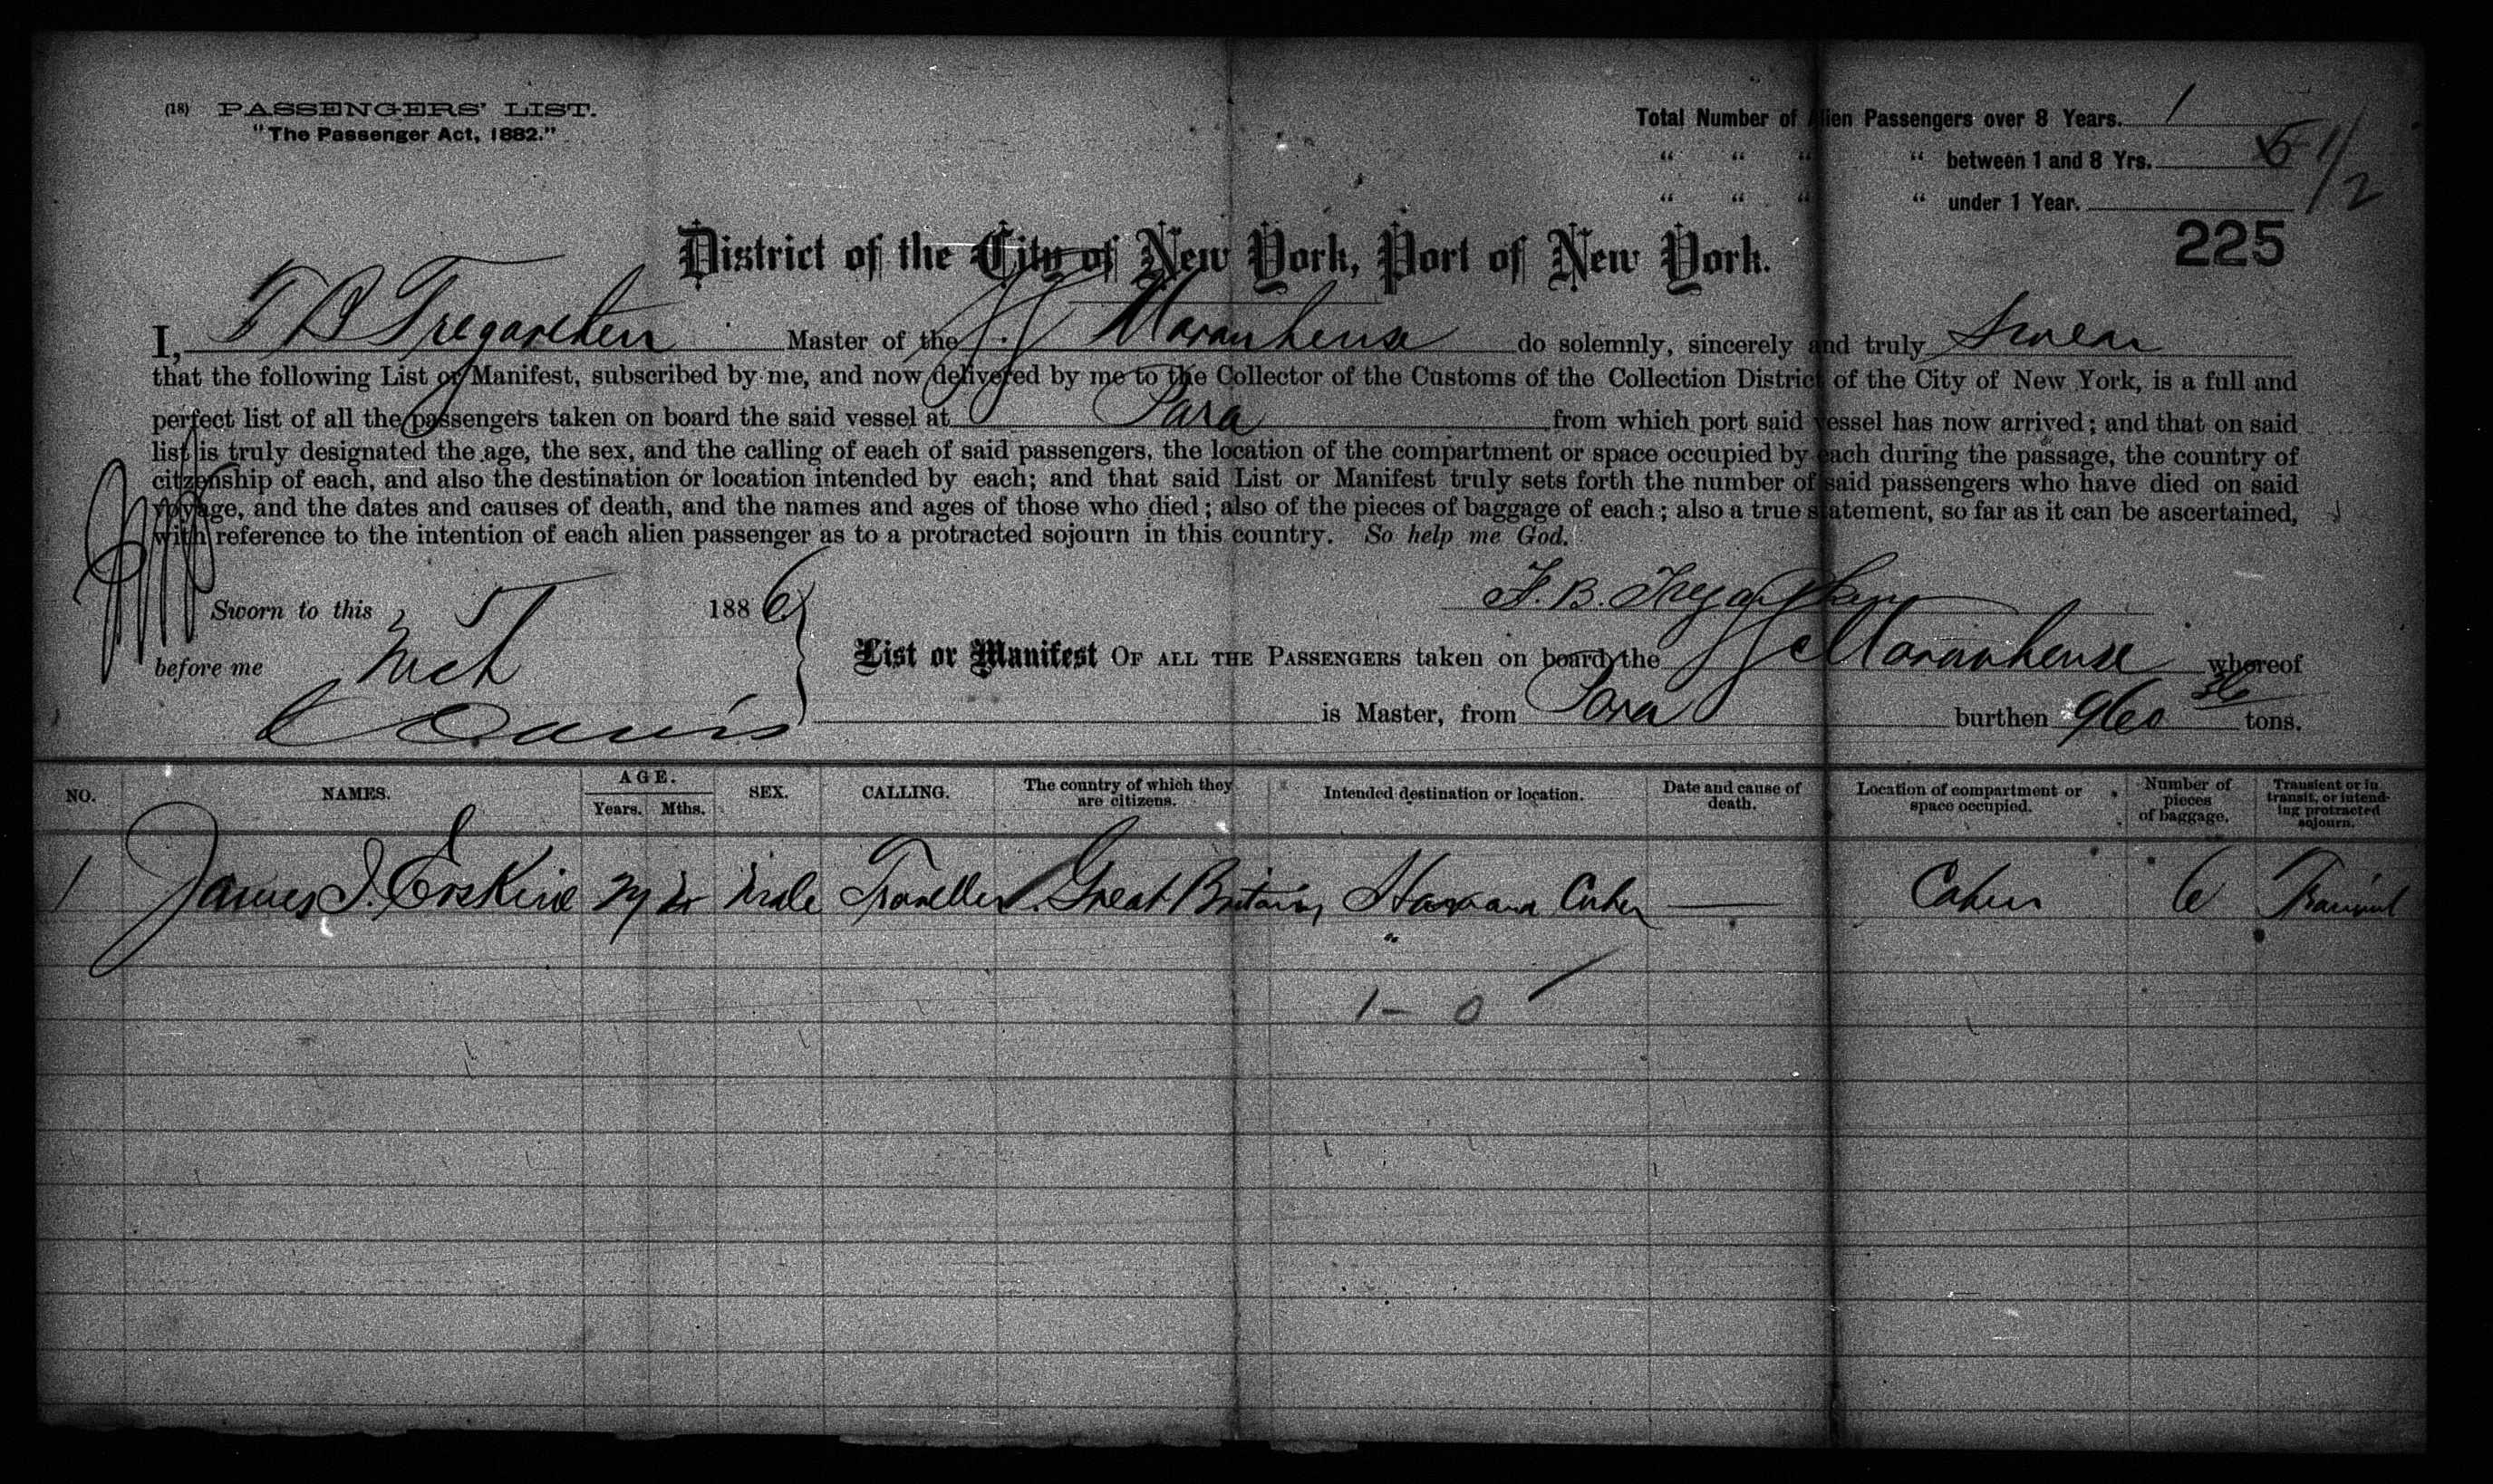 (18) PASSENGERS' LIST.
"The Passenger Act, 1882."
Total Number of Alien Passengers over 8 Years. 1
" " " " between 1 and 8 Yrs.
" " " " under 1 Year.
5 1/2
225
District of the City of New York, Port of New York.
I, F B Tregarthen Master of the SS Maranhense do solemnly, sincerely and truly Swear
that the following List or Manifest, subscribed by me, and now delivered by me to the Collector of the Customs of the Collection District of the City of New York, is a full and
perfect list of all the passengers taken on board the said vessel at Para from which port said vessel has now arrived; and that on said
list is truly designated the age, the sex, and the calling of each of said passengers, the location of the compartment or space occupied by each during the passage, the country of
citizenship of each, and also the destination or location intended by each; and that said List or Manifest truly sets forth the number of said passengers who have died on said
voyage, and the dates and causes of death, and the names and ages of those who died; also of the pieces of baggage of each; also a true statement, so far as it can be ascertained,
with reference to the intention of each alien passenger as to a protracted sojourn in this country. So help me God.
Sworn to this 5 1886
F. B. Tregarthen
before me Mch
List or Manifest OF ALL THE PASSENGERS taken on board the SS Maranhense whereof
Davis
is Master, from Para burthen 960 36 tons.
NO. NAMES. AGE. Years. Mths. SEX. CALLING. The country of which they are citizens. Intended destination or location. Date and cause of death. Location of compartment or space occupied. Number of pieces of baggage. Transient or in transit, or intending protracted sojourn.
1 James I. Erskine Male Traveller Great Britain Havana Cuba — Cabin 6 Transient
"
1 - 0